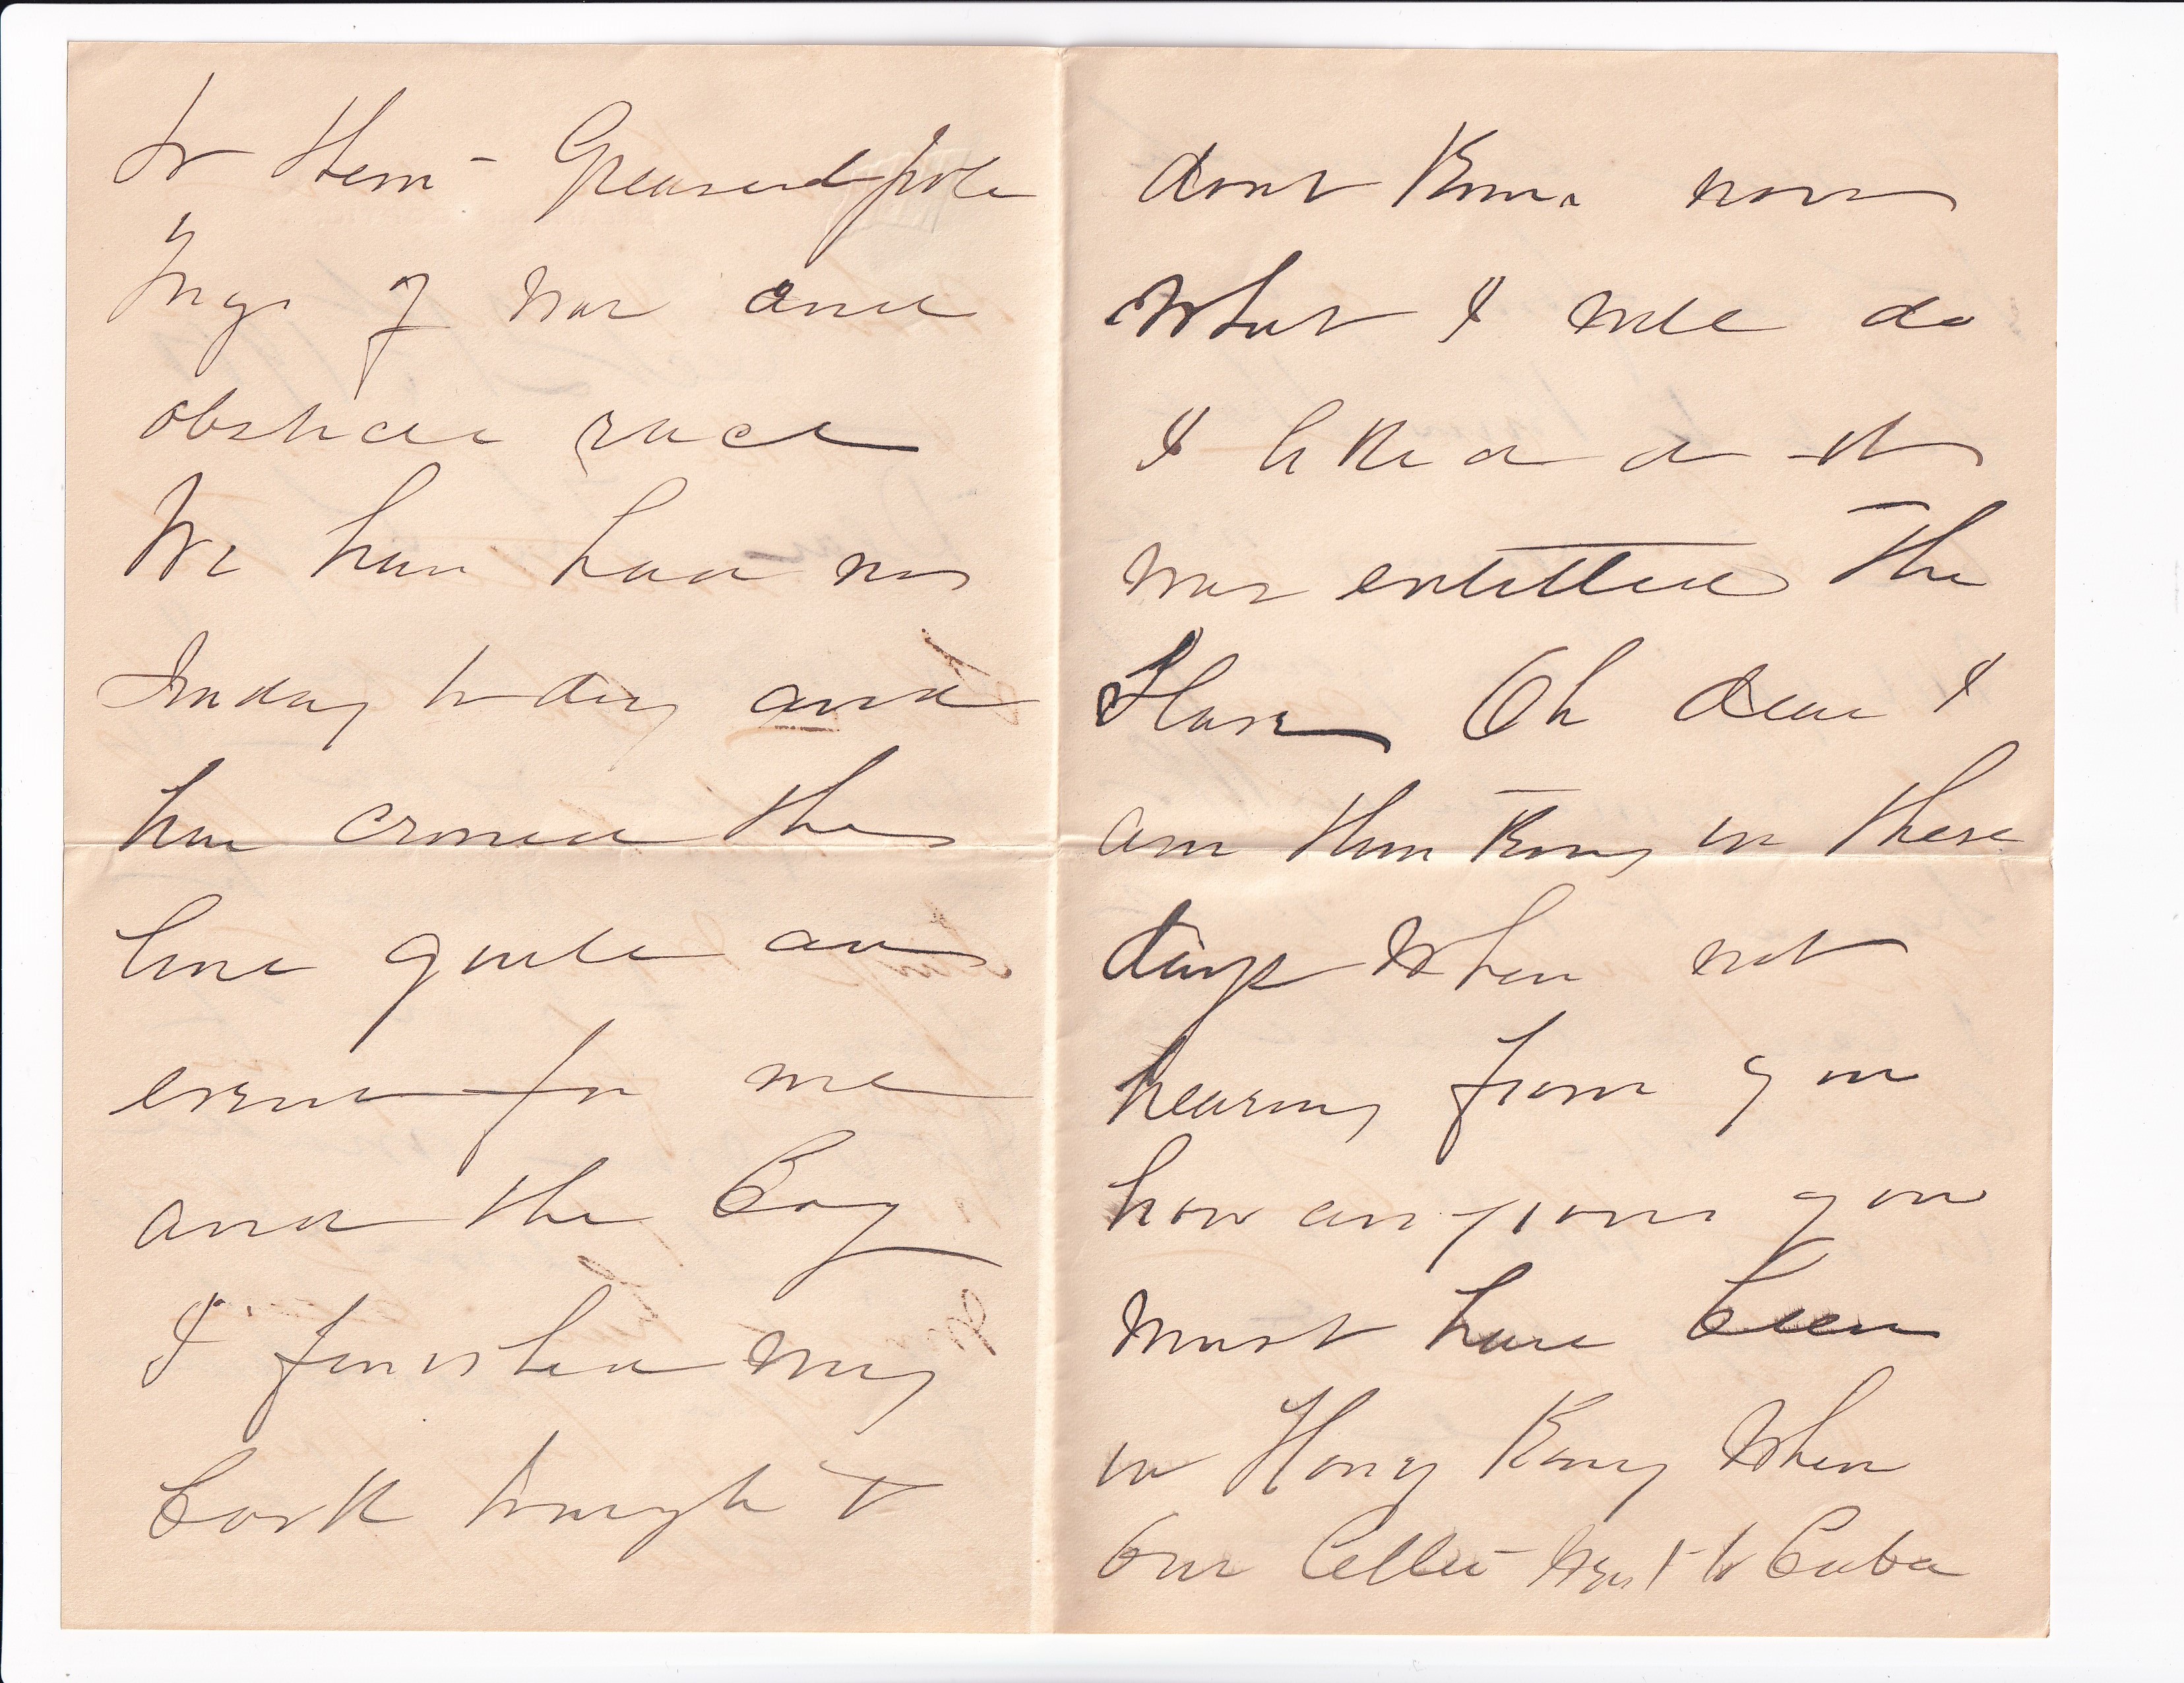 to them - Greased pole
Tugs of war and
obstacle race
We have had no
Sunday to day and
have crossed the
line quite an
event for me
and the Boy
I finished my
book tonight &
dont know now
what I will do
I liked it it
was entitled The
Slave Oh dear I
am thinking in these
days when not
hearing from you
how anxious you
must have been
in Hong Kong when
our went to Cuba